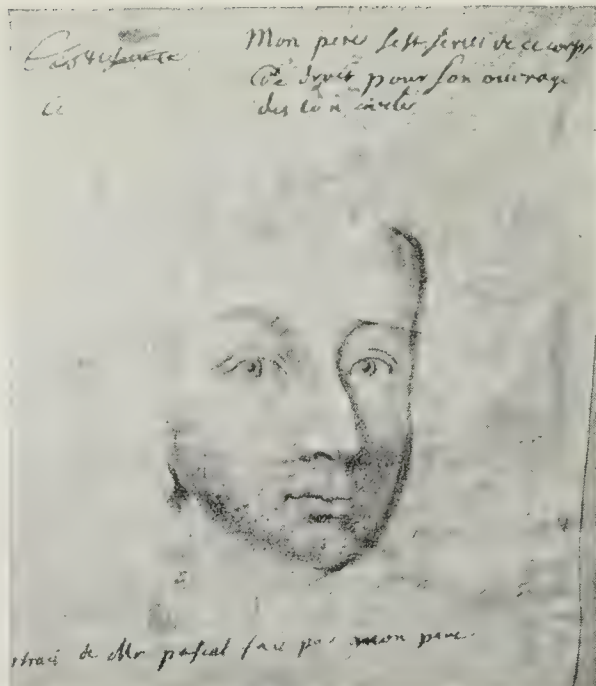 Mon pere sest servi de ce corps
De droit pour son ouvrage
des loix civiles
ce
trait de Mr pascal fait par mon pere